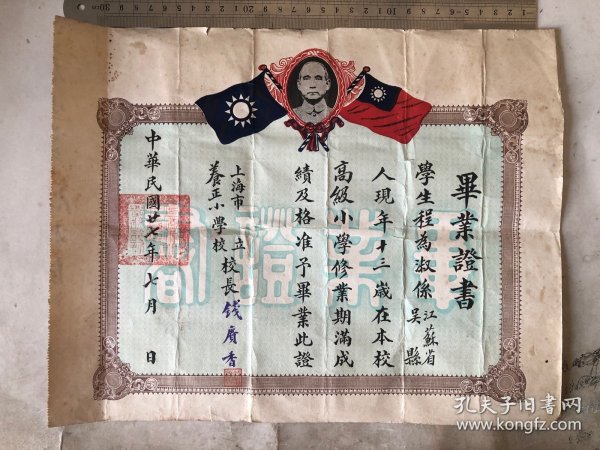 畢業證書
學生程為淑係江蘇省吳縣
人現年十三歲在本校
高級小學修業期滿成
績及格准予畢業此證
上海市 立養正小學校校長錢肩香
中華民國廿七年七月 日
畢業證書
孔夫子旧书网
www.kongfz.com